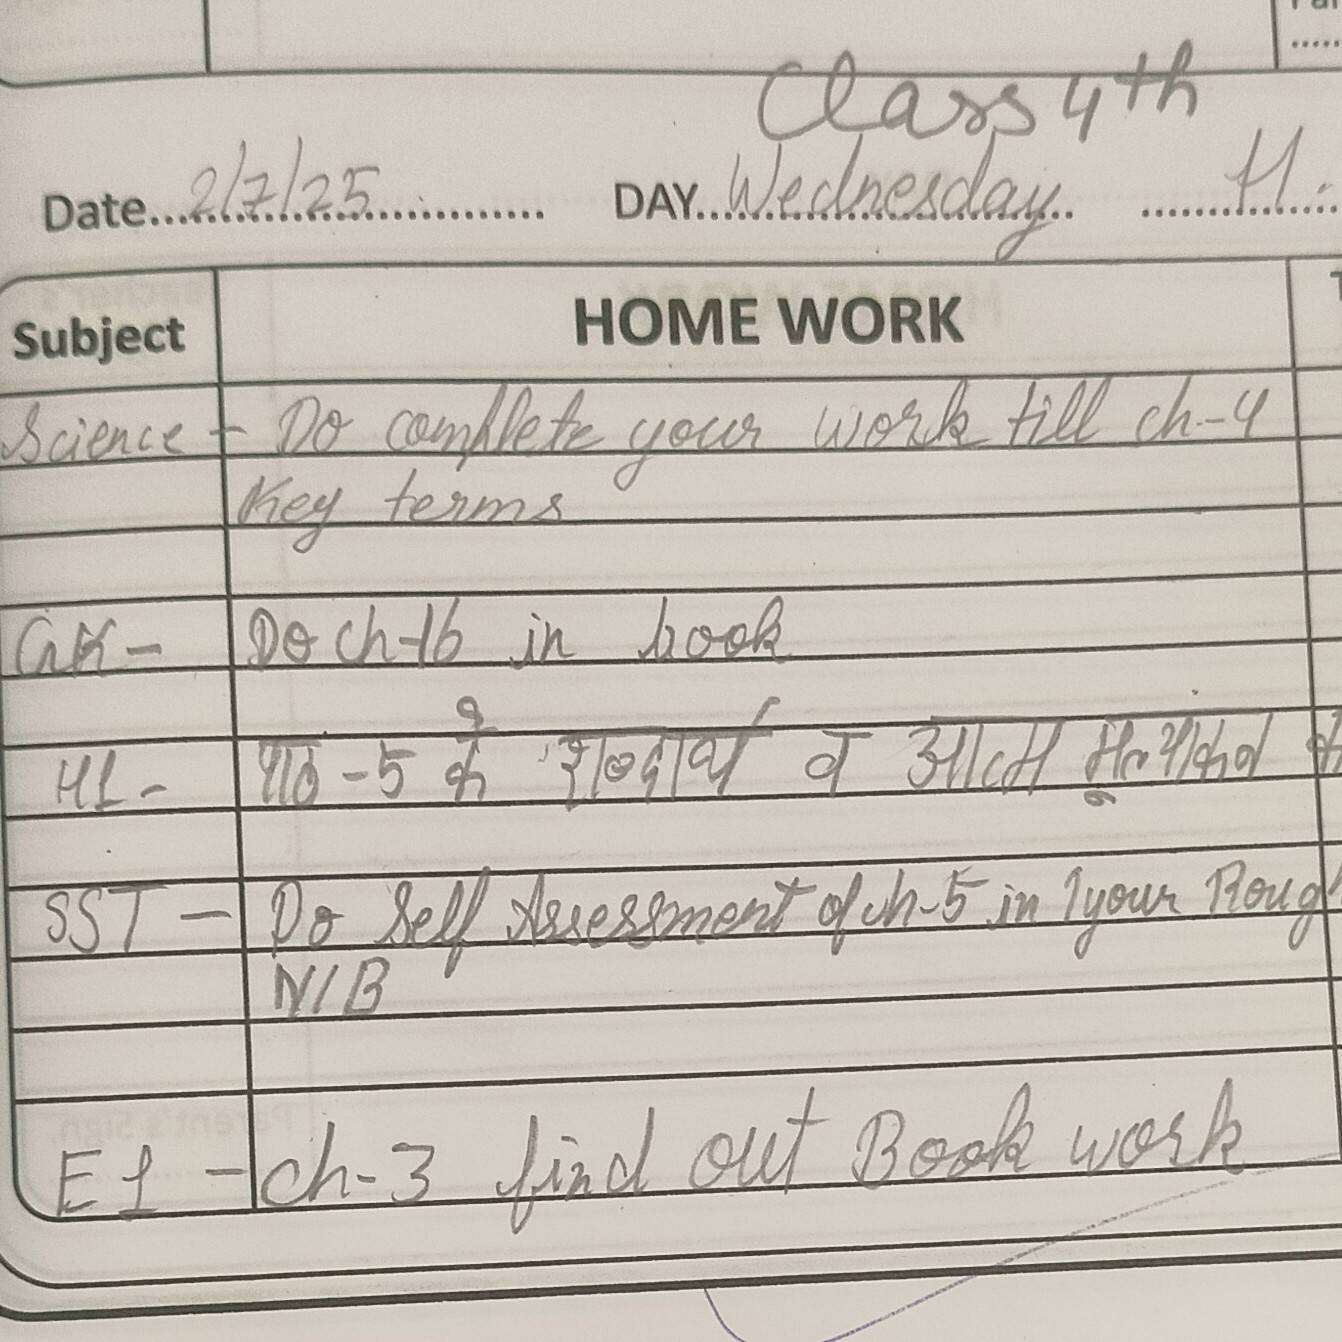 Class 4th
Date 2/7/25 DAY Wednesday H.
Subject HOME WORK
Science - Do complete your work till ch-4
Key terms
GK - Do ch-16 in book
H1 - पाठ -5 के शब्दार्थ व आत्म मूल्यांकन
SST - Do Self Assessment of ch-5 in your Rough
N/B
E1 - ch-3 find out Book work